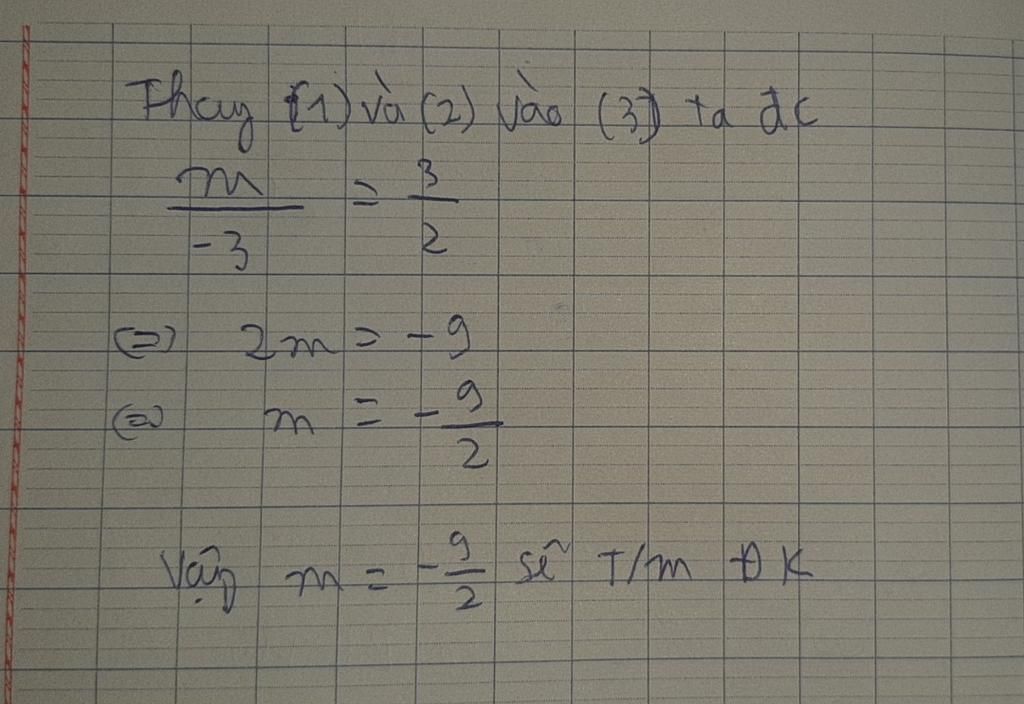 Thay (1) và (2) vào (3) ta đc
m/-3 = 3/2
<=> 2m = -9
<=> m = -9/2
Vậy m = -9/2 sẽ T/m ĐK